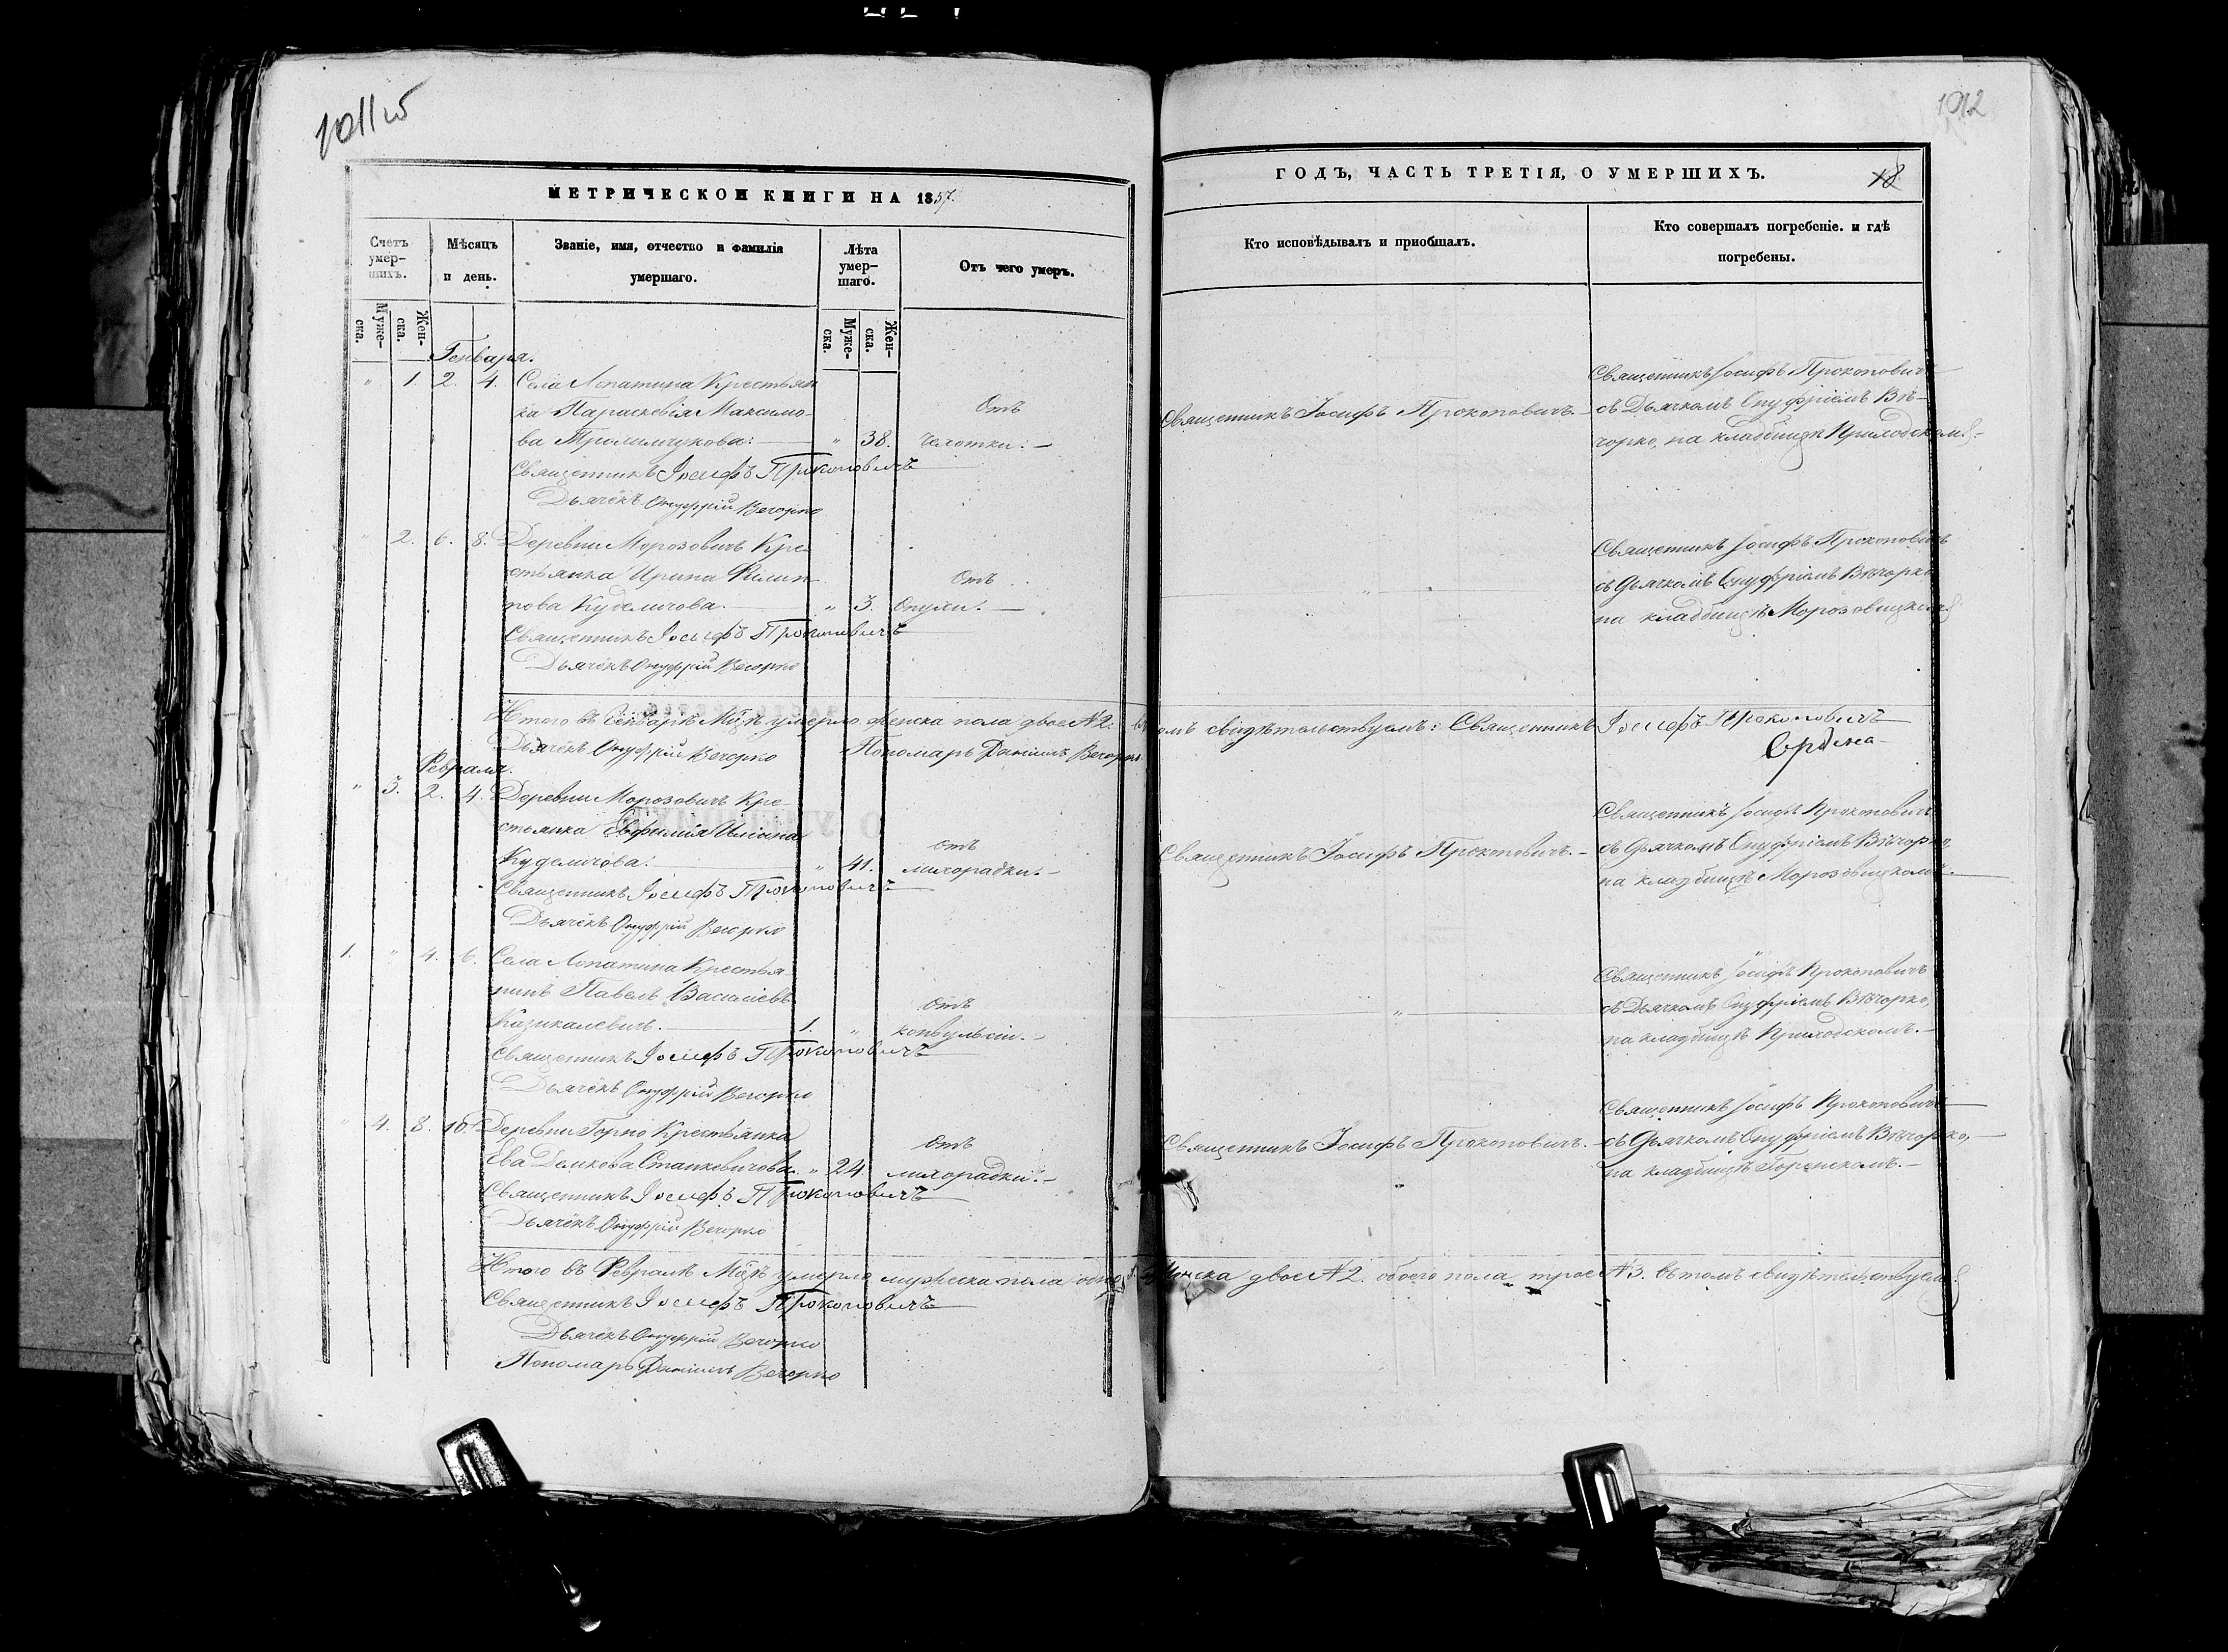 1011 об
1012
МЕТРИЧЕСКОЙ КНИГИ НА 1857.
ГОДЪ, ЧАСТЬ ТРЕТІЯ, О УМЕРШИХЪ.
18
Счетъ умер-
шихъ.
Мѣсяцъ
и день.
Званіе, имя, отчество и фамилія
умершаго.
Лѣта
умер-
шаго.
Отъ чего умеръ.
Кто исповѣдывалъ и приобщалъ.
Кто совершалъ погребеніе. и гдѣ
погребены.
Муже-
ска.
Жен-
ска.
Муже-
ска.
Жен-
ска.
Генваря.
" 1. 2. 4. Села Лопатина Крестьян
ка Параскевія Максимо-
ва " 38.
Отъ
чахотки.
Священникъ Іосифъ Прокоповичъ
Дьячёкъ Онуфрій Вечорко
Священникъ Іосифъ Прокоповичъ.
Священникъ Іосифъ Прокоповичъ
съ Дьячкомъ Онуфріемъ Вѣ-
чорко, на кладбищѣ Приходскомъ.
" 2. 6. 8. Деревни Морозовичъ Кре-
стьянка Ирина Филип-
пова Куделичова. " 3.
Отъ
Опухи.
Священникъ Іосифъ Прокоповичъ
Дьячёкъ Онуфрій Вечорко
"
Священникъ Іосифъ Прокоповичъ
съ Дьячкомъ Онуфріемъ Вѣчорко
на кладбищѣ Морозовицкомъ
Итого въ Генварѣ Мцѣ умерло женска пола двое №2. въ томъ свидѣтельствуемъ: Священникъ Іосифъ Прокоповичъ
Дьячёкъ Онуфрій Вечорко Пономарь Даніилъ Вечорко
Февраля.
" 3. 2. 4. Деревни Морозовичъ Кре-
стьянка Евфимія Ильина
Куделичова. " 41.
отъ
лихорадки.
Священникъ Іосифъ Прокоповичъ
Дьячёкъ Онуфрій Вечорко
Священникъ Іосифъ Прокоповичъ.
Священникъ Іосифъ Прокоповичъ
съ Дьячкомъ Онуфріемъ Вѣчорко,
на кладбищѣ Морозовицкомъ.
1. " 4. 6. Села Лопатина Крестья-
нинъ Павелъ Василіевъ
Казикалевичъ. 1. "
Отъ
конвульсіи.
Священникъ Іосифъ Прокоповичъ
Дьячёкъ Онуфрій Вечорко
"
Священникъ Іосифъ Прокоповичъ
съ Дьячкомъ Онуфріемъ Вѣчорко,
на кладбищѣ Приходскомъ.
" 4. 8. 10. Деревни Горно Крестьянка
Ева Демкова Станкевичова " 24
Отъ
лихорадки.
Священникъ Іосифъ Прокоповичъ
Дьячёкъ Онуфрій Вечорко
Священникъ Іосифъ Прокоповичъ.
Священникъ Іосифъ Прокоповичъ
съ Дьячкомъ Онуфріемъ Вѣчорко,
на кладбищѣ Горенскомъ.
Итого въ Февралѣ Мцѣ умерло мужеска пола женска двое №2. обоего пола трое №3. въ томъ свидѣтельствуемъ
Священникъ Іосифъ Прокоповичъ
Дьячёкъ Онуфрій Вечорко
Пономарь Даніилъ Вечорко